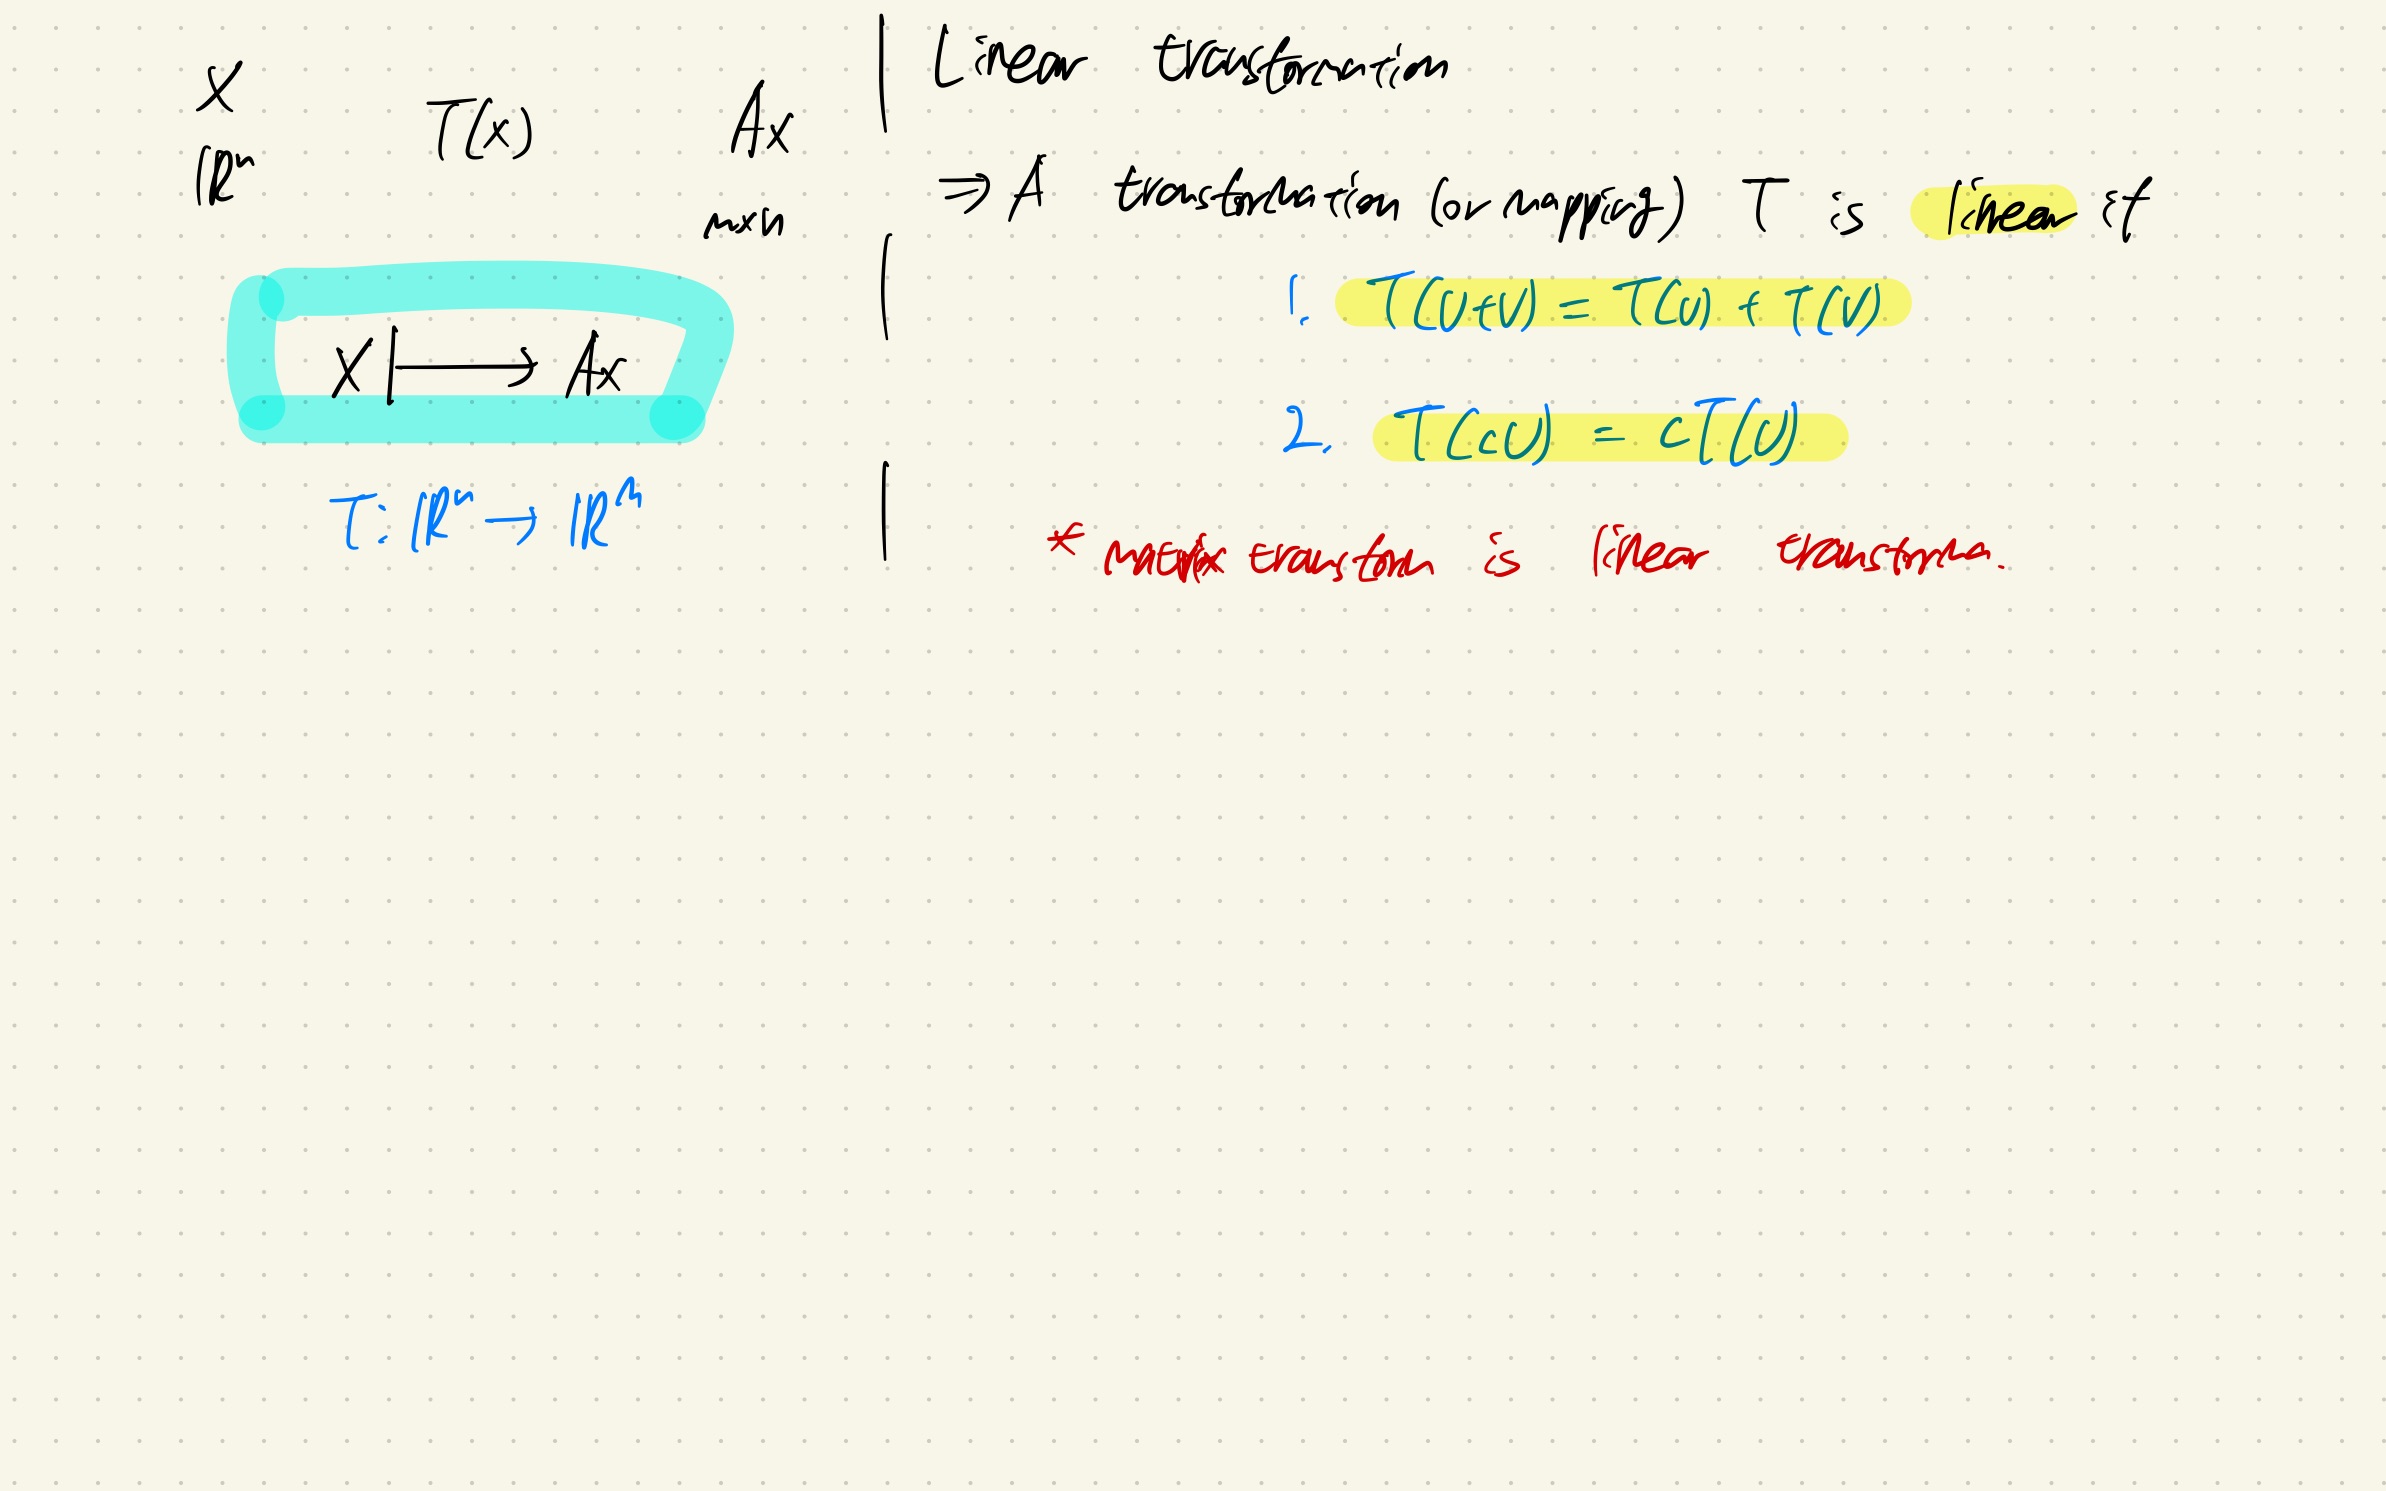 X
ℝⁿ
T(x)
Ax
m×n
X ↦ Ax
T: ℝⁿ → ℝᵐ
Linear transformation
⇒ A transformation (or mapping) T is linear if
1. T(u+v) = T(u) + T(v)
2. T(cu) = cT(u)
* matrix transform is linear transform.